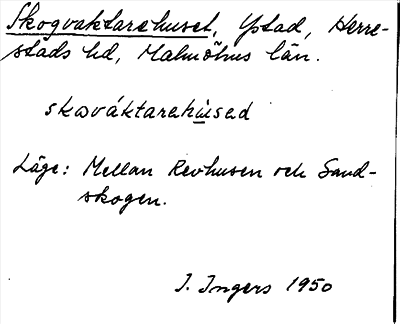 Skogvaktarehuset, Ystad, Herre-
stads hd, Malmöhus län.
skωváktarehùsed
Läge: Mellan Revhusen och Sand-
skogen.
I. Ingers 1950